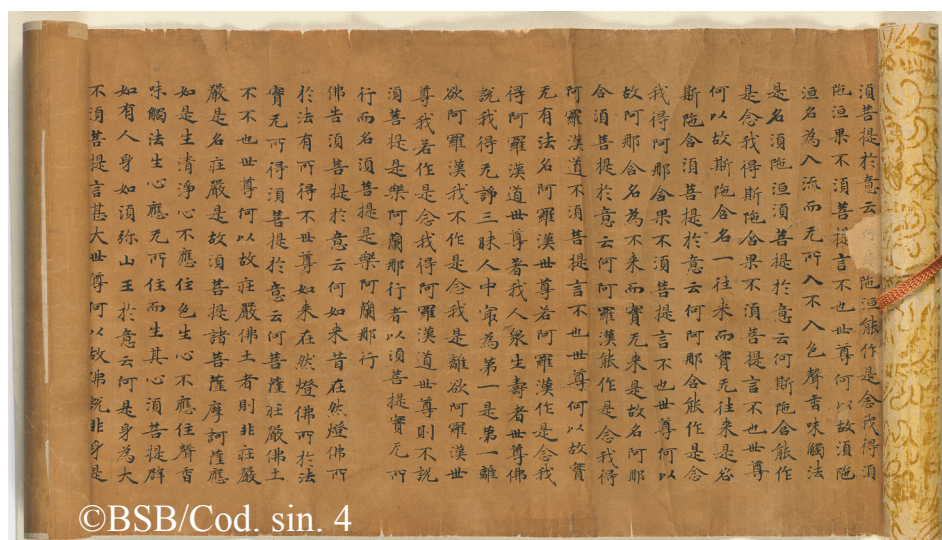 湏菩提於意云 陁洹能作是念我得湏
陁洹果不湏菩提言不也世尊何以故湏陁
洹名為入流而无所入不入色聲香味觸法
是名湏陁洹湏菩提於意云何斯陁含能作
是念我得斯陁含果不湏菩提言不也世尊
何以故斯陁含名一往来而實无往来是名
斯陁含湏菩提於意云何阿那含能作是念
我得阿那含果不湏菩提言不也世尊何以
故阿那含名為不来而實无来是故名阿那
含湏菩提於意云何阿羅漢能作是念我得
阿羅漢道不湏菩提言不也世尊何以故實
无有法名阿羅漢世尊若阿羅漢作是念我
得阿羅漢道世尊著我人衆生壽者世尊佛
說我得无諍三昧人中冣為第一是第一離
欲阿羅漢我不作是念我是離欲阿羅漢世
尊我若作是念我得阿羅漢道世尊則不說
湏菩提是樂阿蘭那行者以湏菩提實无所
行而名湏菩提是樂阿蘭那行
佛告湏菩提於意云何如来昔在然燈佛所
於法有所得不世尊如来在然燈佛所於法
實无所得湏菩提於意云何菩薩莊嚴佛土
不不也世尊何以故莊嚴佛土者則非莊嚴
嚴是名莊嚴是故湏菩提諸菩薩摩訶薩應
如是生清淨心不應住色生心不應住聲香
味觸法生心應无所住而生其心湏菩提辟
如有人身如湏弥山王於意云何是身為大
不湏菩提言甚大世尊何以故佛說非身是
©BSB/Cod. sin. 4